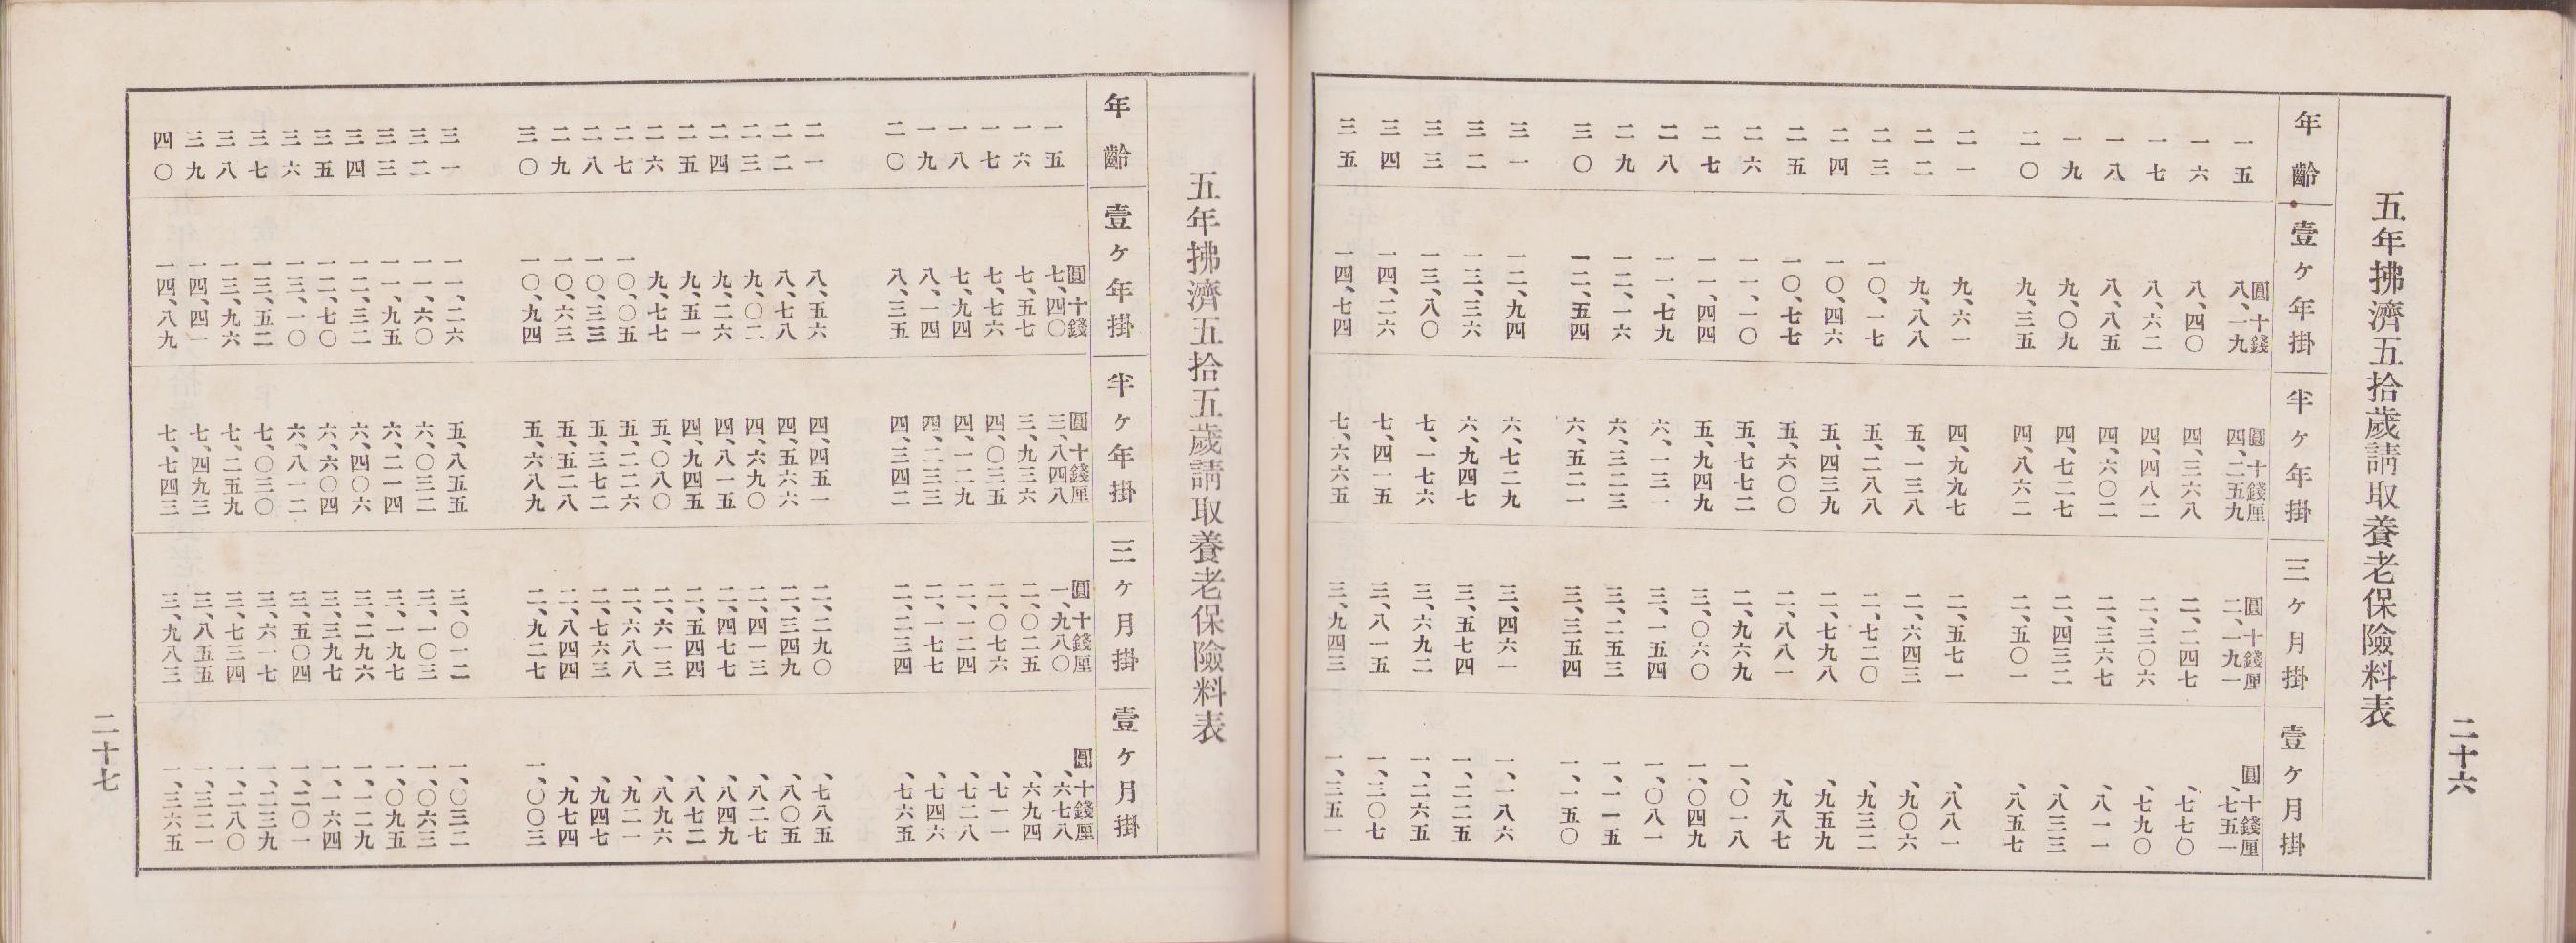 二十六
五年拂濟五拾歲請取養老保險料表
年齡 壹ヶ年掛 半ヶ年掛 三ヶ月掛 壹ヶ月掛
圓十錢 圓十錢厘 圓十錢厘 圓十錢厘
一五 八、一九 四、二五九 二、一九一 、七五一
一六 八、四〇 四、三六八 二、二四七 、七七〇
一七 八、六二 四、四八二 二、三〇六 、七九〇
一八 八、八五 四、六〇二 二、三六七 、八一一
一九 九、〇九 四、七二七 二、四三二 、八三三
二〇 九、三五 四、八六二 二、五〇一 、八五七
二一 九、六一 四、九九七 二、五七一 、八八一
二二 九、八八 五、一三八 二、六四三 、九〇六
二三 一〇、一七 五、二八八 二、七二〇 、九三二
二四 一〇、四六 五、四三九 二、七九八 、九五九
二五 一〇、七七 五、六〇〇 二、八八一 、九八七
二六 一一、一〇 五、七七二 二、九六九 一、〇一八
二七 一一、四四 五、九四九 三、〇六〇 一、〇四九
二八 一一、七九 六、一三一 三、一五四 一、〇八一
二九 一二、一六 六、三二三 三、二五三 一、一一五
三〇 一二、五四 六、五二一 三、三五四 一、一五〇
三一 一二、九四 六、七二九 三、四六一 一、一八六
三二 一三、三六 六、九四七 三、五七四 一、二二五
三三 一三、八〇 七、一七六 三、六九二 一、二六五
三四 一四、二六 七、四一五 三、八一五 一、三〇七
三五 一四、七四 七、六六五 三、九四三 一、三五一
五年拂濟五拾五歲請取養老保險料表
年齡 壹ヶ年掛 半ヶ年掛 三ヶ月掛 壹ヶ月掛
圓十錢 圓十錢厘 圓十錢厘 圓十錢厘
一五 七、四〇 三、八四八 一、九八〇 、六七八
一六 七、五七 三、九三六 二、〇二五 、六九四
一七 七、七六 四、〇三五 二、〇七六 、七一一
一八 七、九四 四、一二九 二、一二四 、七二八
一九 八、一四 四、二三三 二、一七七 、七四六
二〇 八、三五 四、三四二 二、二三四 、七六五
二一 八、五六 四、四五一 二、二九〇 、七八五
二二 八、七八 四、五六六 二、三四九 、八〇五
二三 九、〇二 四、六九〇 二、四一三 、八二七
二四 九、二六 四、八一五 二、四七七 、八四九
二五 九、五一 四、九四五 二、五四四 、八七二
二六 九、七七 五、〇八〇 二、六一三 、八九六
二七 一〇、〇五 五、二二六 二、六八八 、九二一
二八 一〇、三三 五、三七二 二、七六三 、九四七
二九 一〇、六三 五、五二八 二、八四四 、九七四
三〇 一〇、九四 五、六八九 二、九二七 一、〇〇三
三一 一一、二六 五、八五五 三、〇一二 一、〇三二
三二 一一、六〇 六、〇三二 三、一〇三 一、〇六三
三三 一一、九五 六、二一四 三、一九七 一、〇九五
三四 一二、三二 六、四〇六 三、二九六 一、一二九
三五 一二、七〇 六、六〇四 三、三九七 一、一六四
三六 一三、一〇 六、八一二 三、五〇四 一、二〇一
三七 一三、五二 七、〇三〇 三、六一七 一、二三九
三八 一三、九六 七、二五九 三、七三四 一、二八〇
三九 一四、四一 七、四九三 三、八五五 一、三二一
四〇 一四、八九 七、七四三 三、九八三 一、三六五
二十七